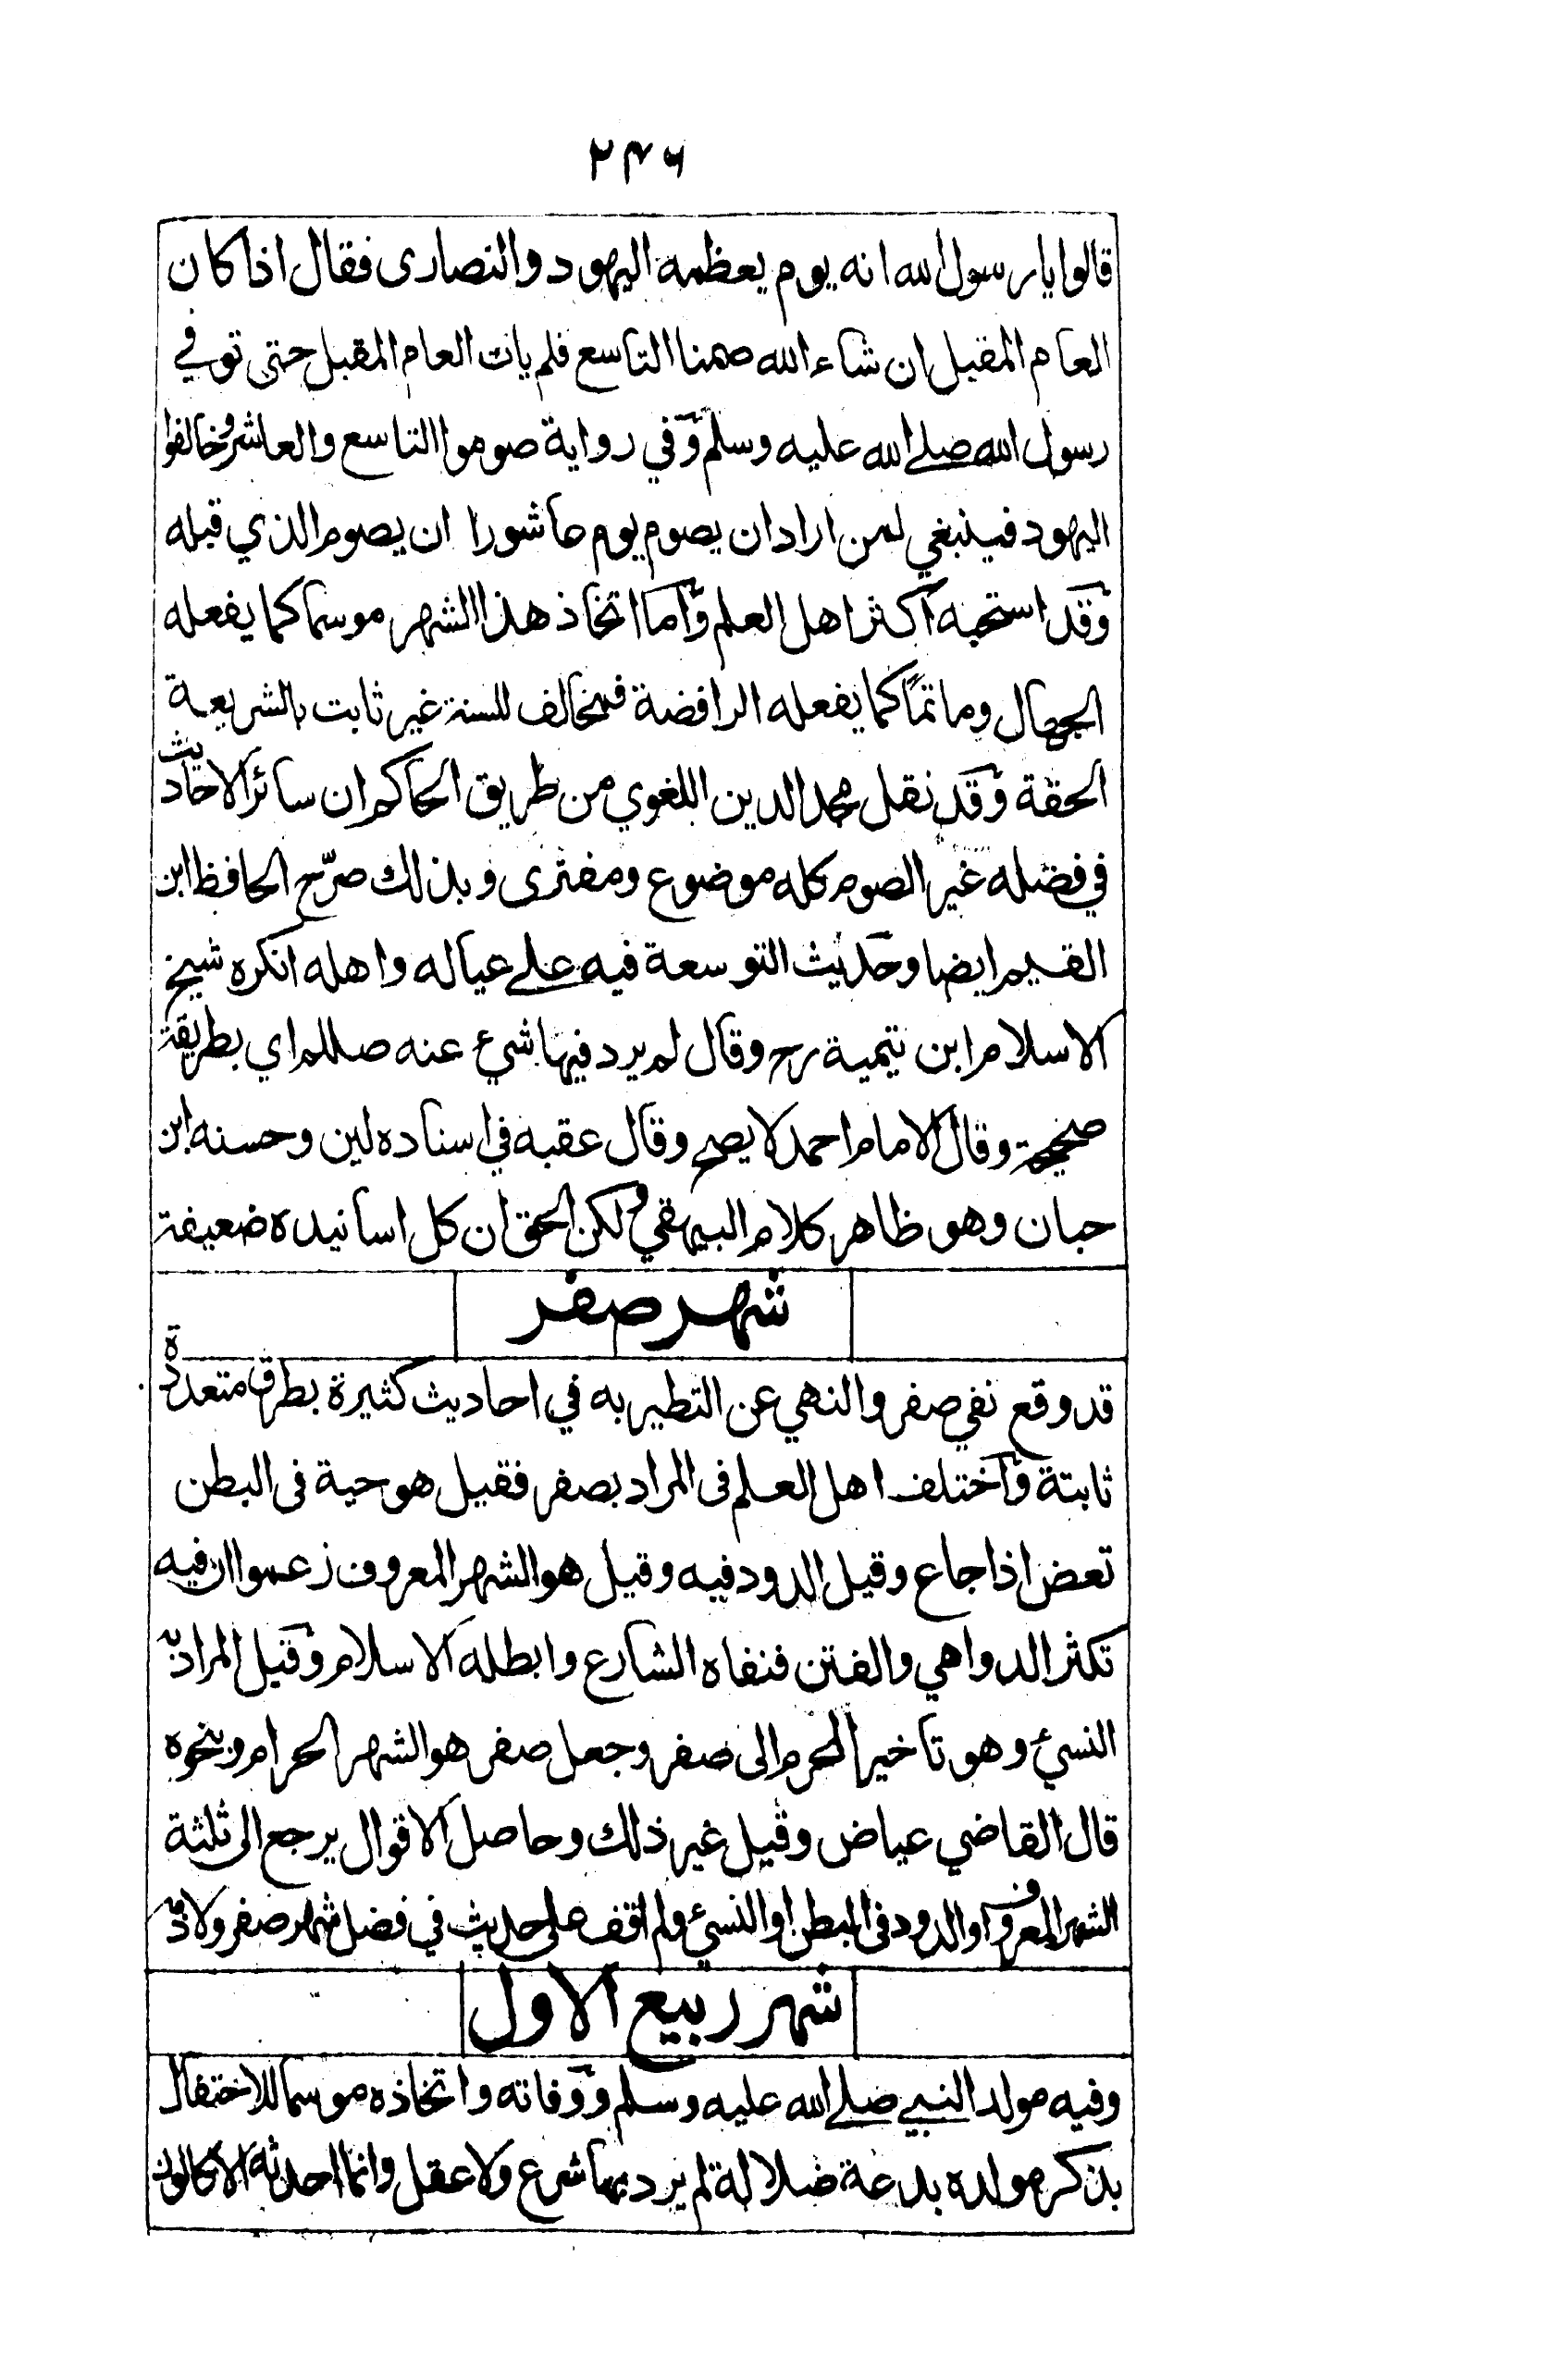 ٢٤٦
قالوا يا رسول الله انه يوم يعظمه اليهود والنصارى فقال اذا كان
العام المقبل ان شاء الله صمنا التاسع فلم يات العام المقبل حتى توفي
رسول الله صلے الله عليه وسلم وفي رواية صوموا التاسع والعاشر وخالفوا
اليهود فينبغي لمن اراد ان يصوم يوم عاشورا ان يصوم الذي قبله
وقد استحبه اكثر اهل العلم واما اتخاذ هذا الشهر موسما كما يفعله
الجهال وماتمًا كما يفعله الرافضة فمخالف للسنة غير ثابت بالشريعة
الحقة وقد نقل مجد الدين اللغوي من طريق الحاكم ان سائر الاحاديث
في فضله غير الصوم كله موضوع ومفترى وبذلك صرّح الحافظ ابن
القيم ايضا وحديث التوسعة فيه علے عياله واهله انكره شيخ
الاسلام ابن تيمية رح وقال لم يرد فيها شيء عنه صللم اي بطريقة
صحيحة وقال الامام احمد لا يصح وقال عقبه في اسناده لين وحسنه ابن
حبان وهو ظاهر كلام البيهقي ولكن الحق ان كل اسانيده ضعيفة
شهر صفر
قد وقع نفي صفر والنهي عن التطير به في احاديث كثيرة بطرق متعددة
ثابتة واختلف اهل العلم فى المراد بصفر فقيل هو حية فى البطن
تعض اذا جاع وقيل الدود فيه وقيل هو الشهر المعروف زعموا ان فيه
تكثر الدواهي والفتن فنفاه الشارع وابطله الاسلام وقيل المراد به
النسيء وهو تاخير المحرم الى صفر وجعل صفر هو الشهر الحرام وبنحوه
قال القاضي عياض وقيل غير ذلك وحاصل الاقوال يرجع الى ثلثة
الشهر المعروف او الدود فى البطن او النسيء ولم اقف على حديث في فضل شهر صفر ولا ذمه
شهر ربيع الاول
وفيه مولد النبي صلے الله عليه وسلم ووفاته واتخاذه موسما للاحتفال
بذكر مولده بدعة ضلالة لم يرد بها شرع ولا عقل وانما احدثه الاكالون